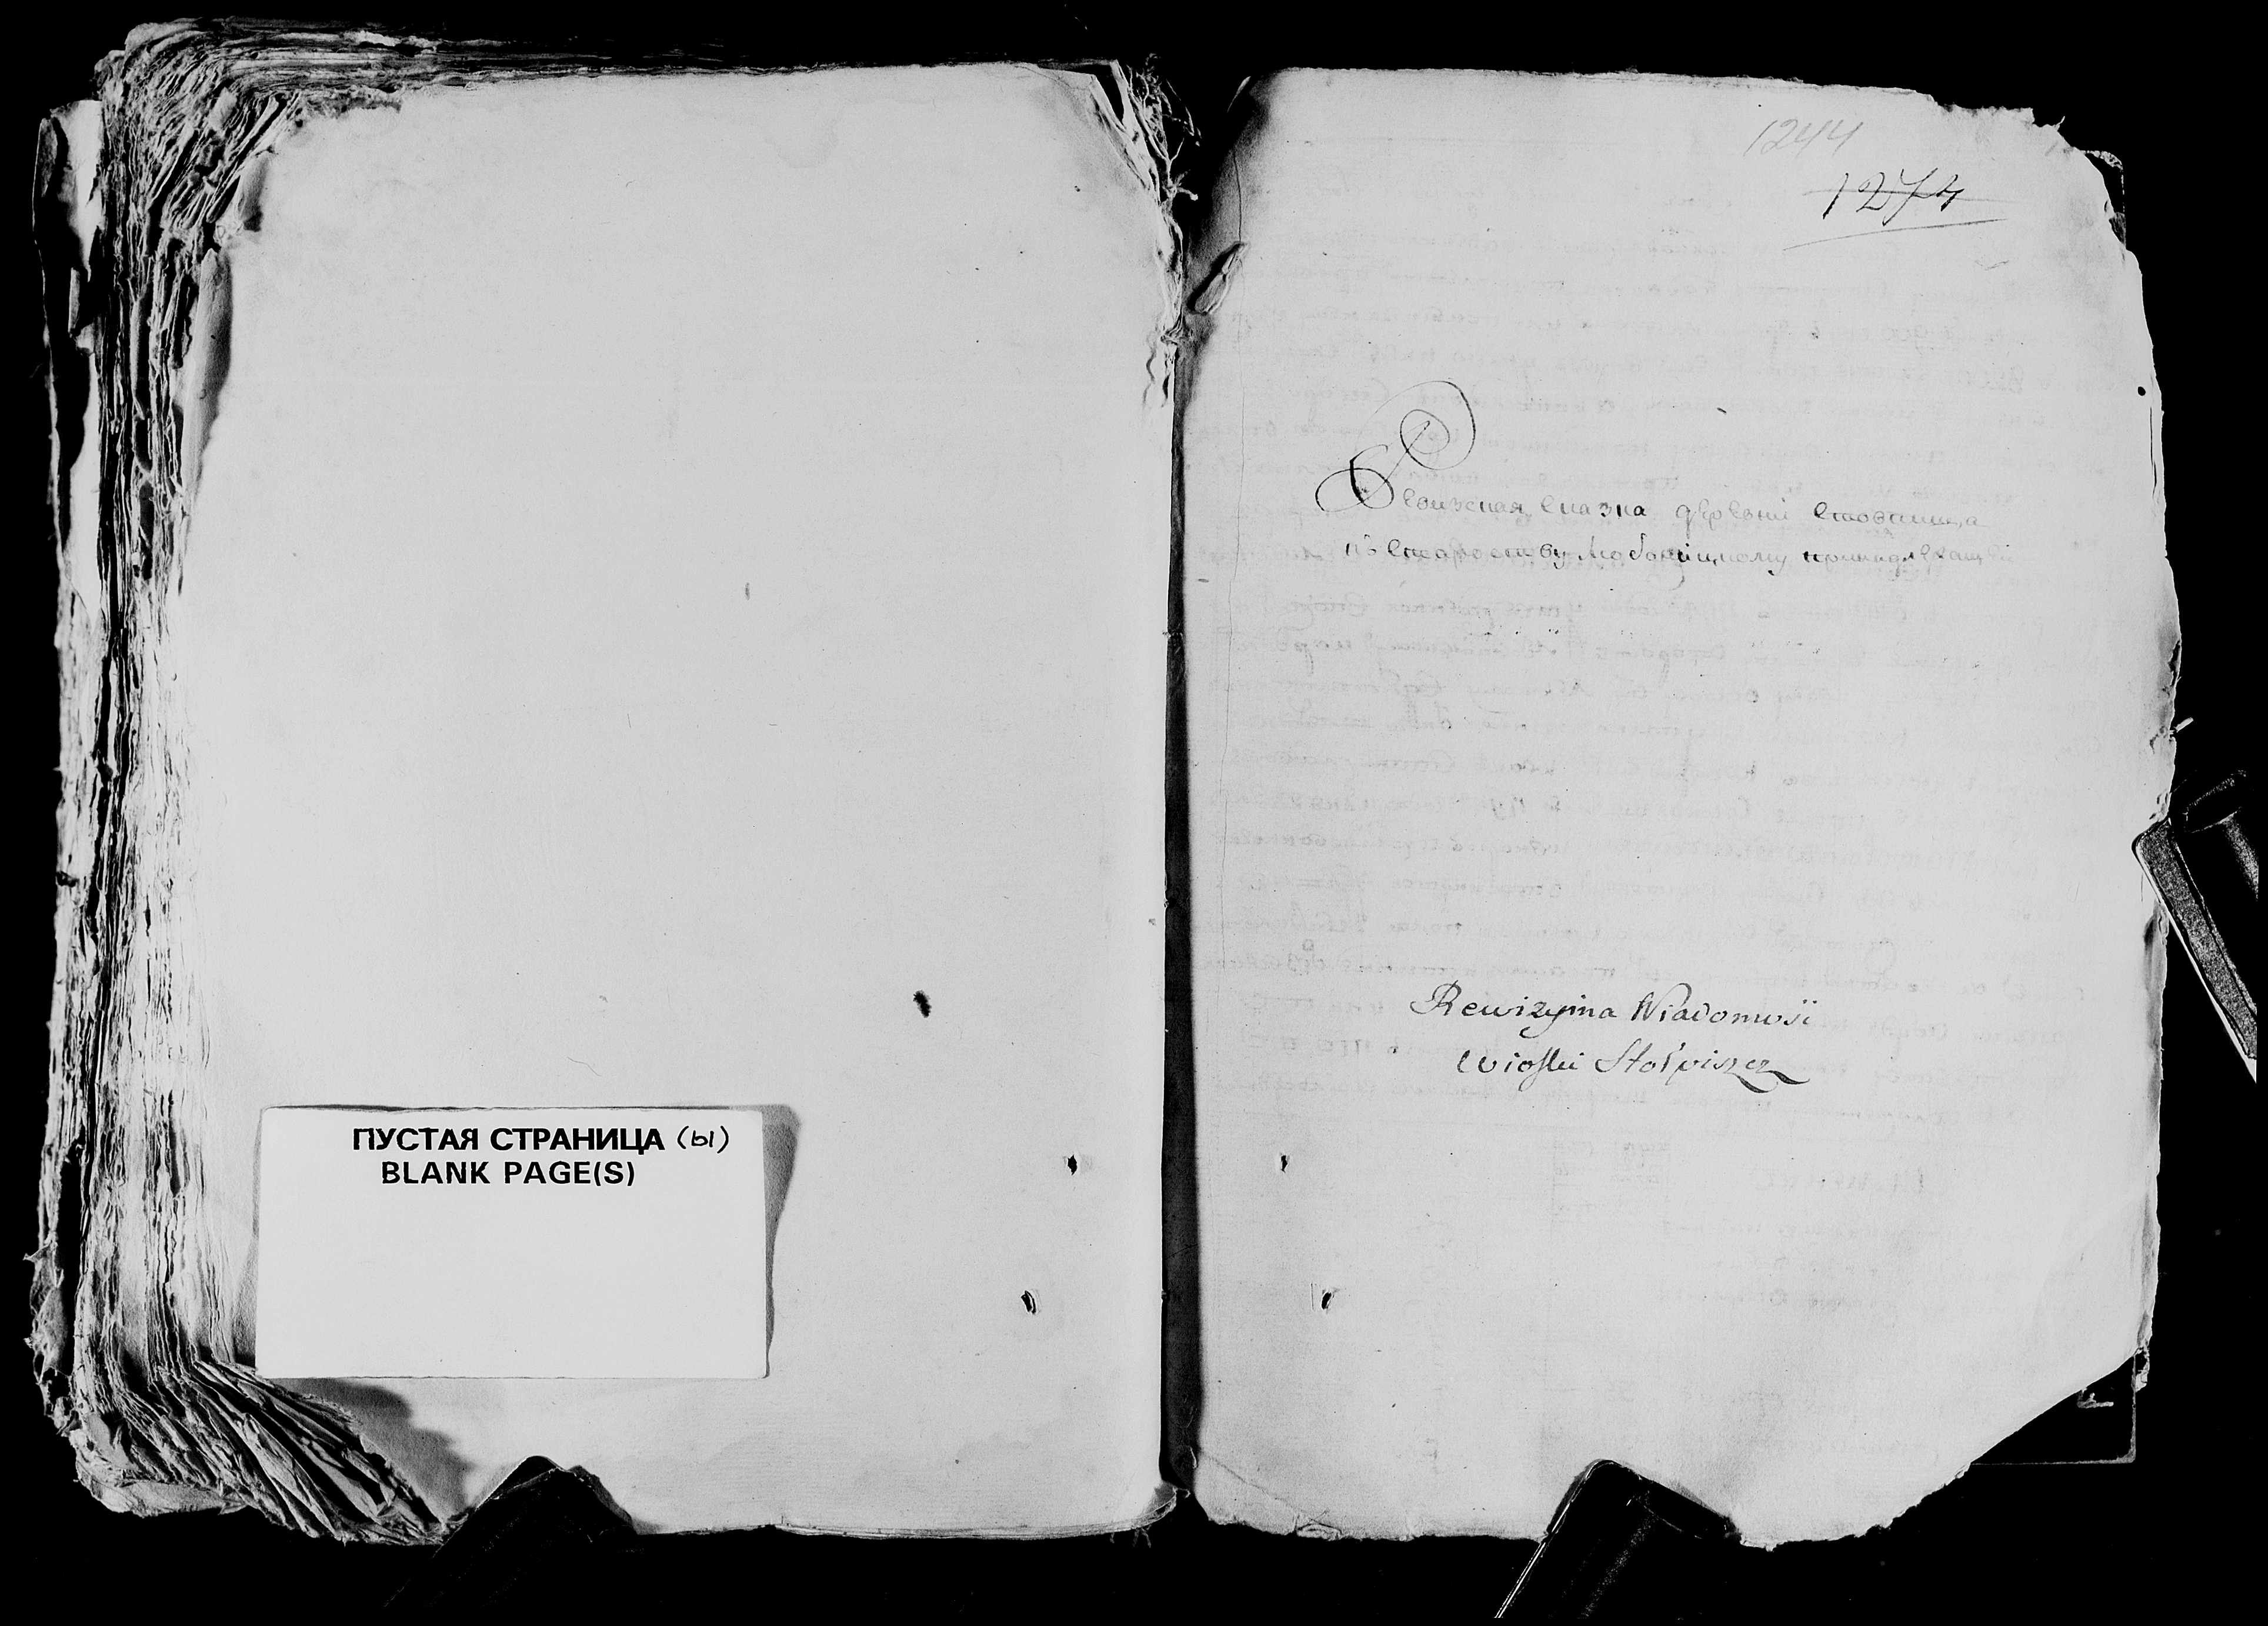 ПУСТАЯ СТРАНИЦА (ы)
BLANK PAGE(S)
1244
1274
Ревизская сказка деревни
къ староству принадлежащ
Rewizyina Wiadomość
wioski Stołpiszcz